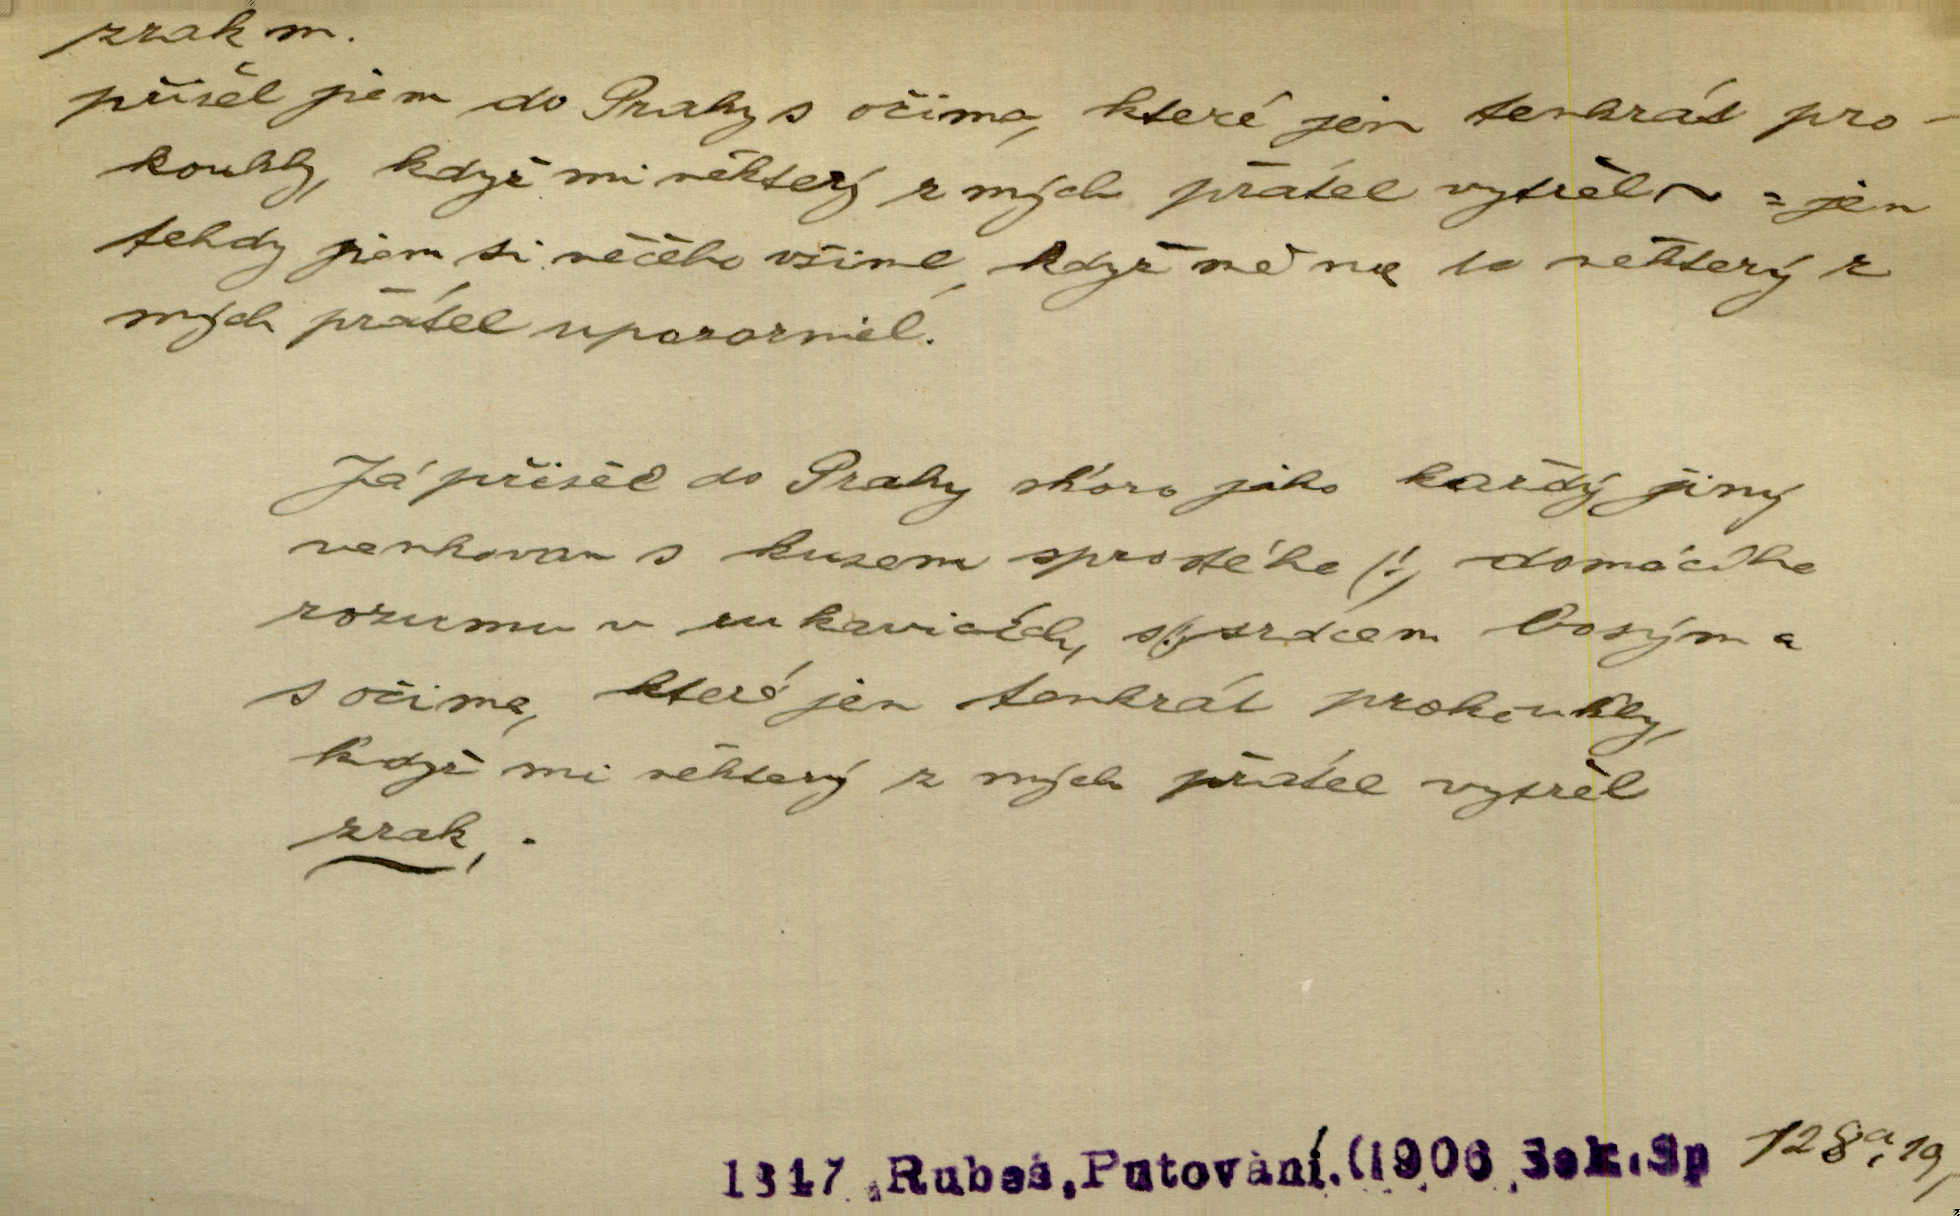 zrak m.
přišel jsem do Prahy s očima, které jen tenkrát pro-
koukly, když mi některý z mých přátel vytřel ~ = jen
tehdy jsem si něčeho všiml, když mě na to některý z
mých přátel upozornil.
Já přišel do Prahy skoro jako každý jiný
venkovan s kusem sprostého (!) domácího
rozumu v rukavicích, s srdcem bosým a
s očima, které jen tenkrát prokoukly,
když mi některý z mých přátel vytřel
zrak, .
1847, Rubeš, Putování. (1906 Seb. Sp 128a, 19,